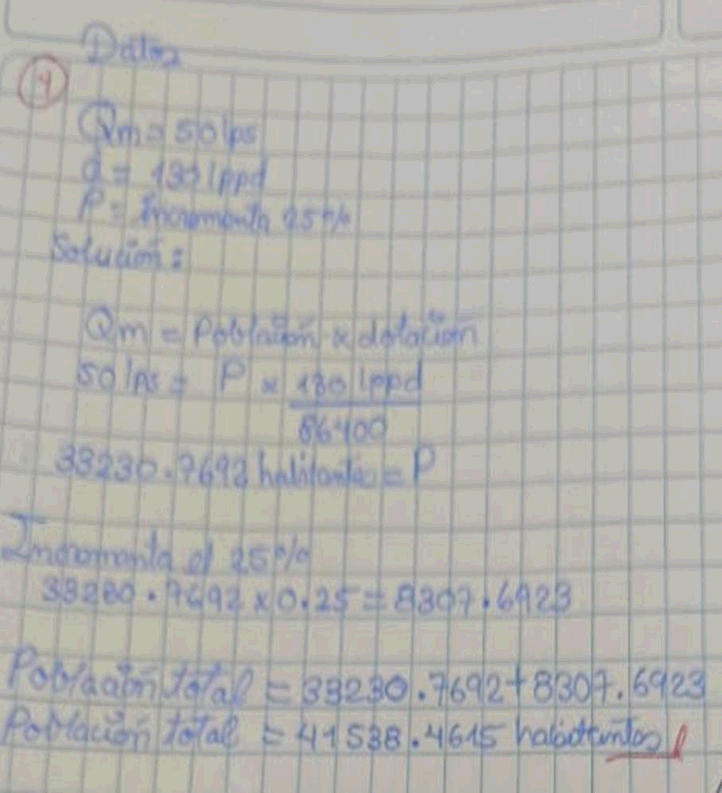 Datos
4
Qm = 50 lps
d = 130 lppd
P = Incrementa 25%
Solución:
Qm = Población x dotación
50 lps = P x 130 lppd
86400
33230.7692 habitantes = P
Incrementa el 25%
33230.7692 x 0.25 = 8307.6923
Población total = 33230.7692 + 8307.6923
Población total = 41538.4615 habitantes